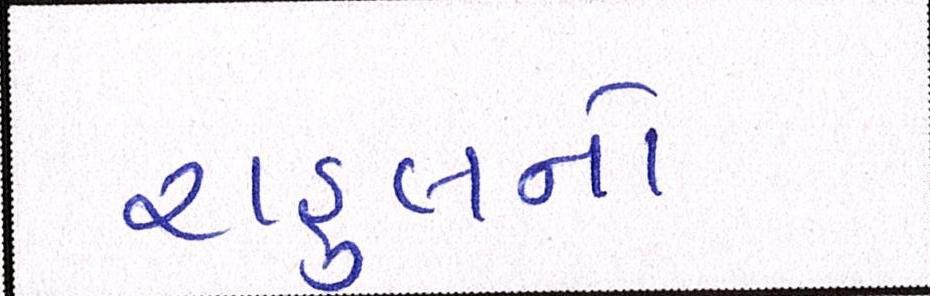 રાહુલનો